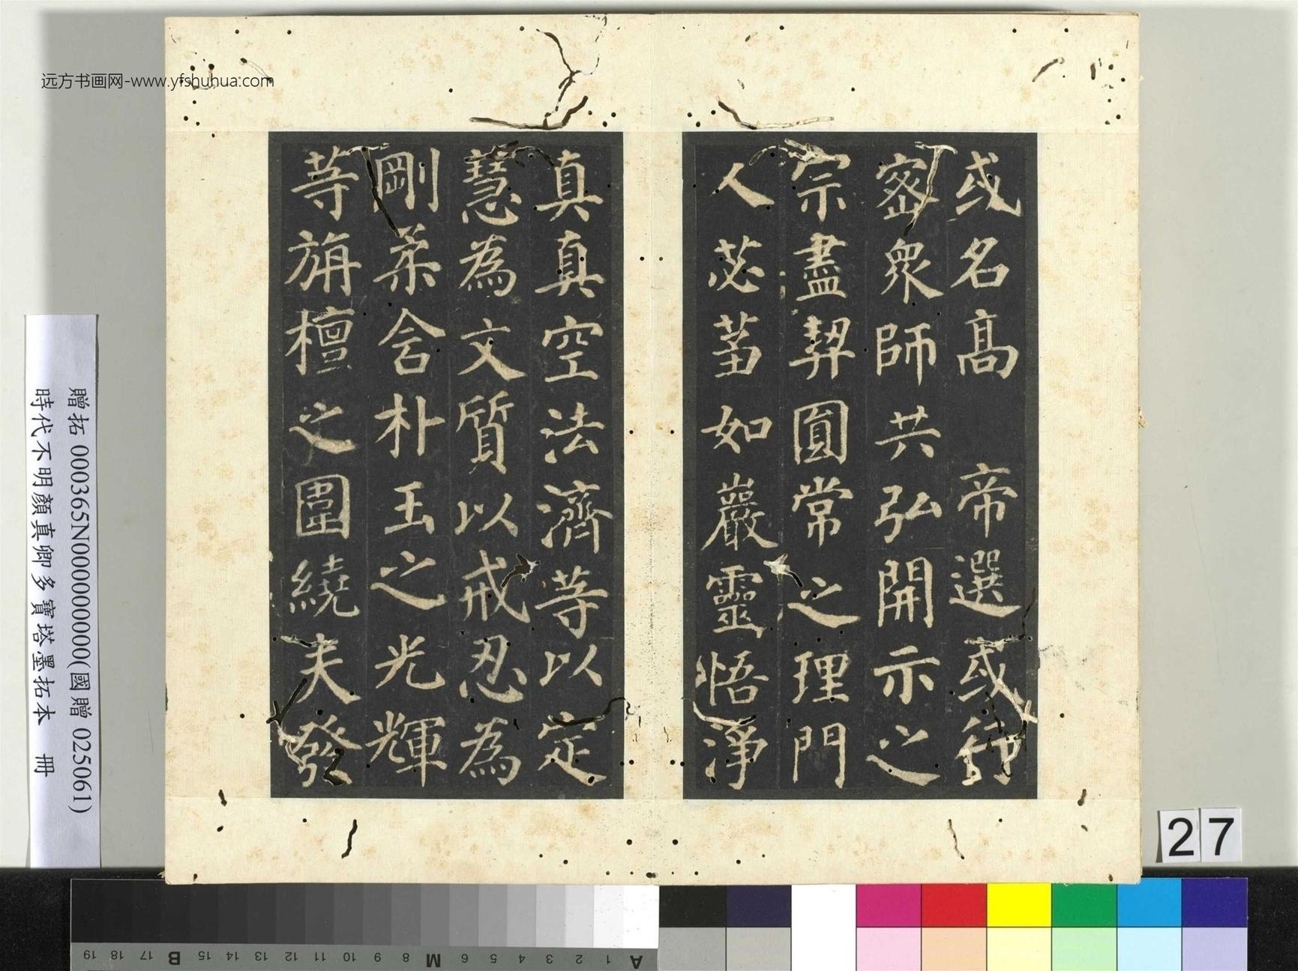 远方书画网-www.yfshuhua.com
或名高 帝選或行
密衆師共弘開示之
宗盡契圓常之理門
人苾蒭如巖靈悟淨
真真空法濟等以定
慧為文質以戒忍為
剛柔含朴玉之光輝
等旃檀之圍繞夫發
贈拓 000365N000000000(國贈 025061)
時代不明顏真卿多寶塔墨拓本 冊
27
19 18 17 B 15 14 13 12 11 10 9 8 M 6 5 4 3 2 1 A